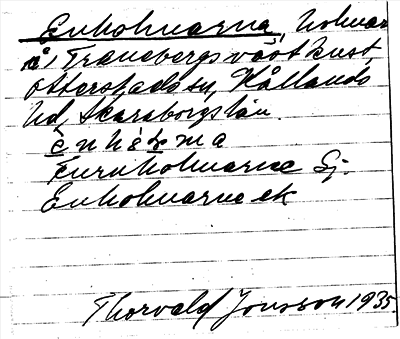 Enholmarna, holmar
i Tranebergs västkust,
Otterstads sn, Kållands
hd, Skaraborgs län.
Enholmarna Sj.
Enholmarna ek
Thorvald Jonsson 1935.